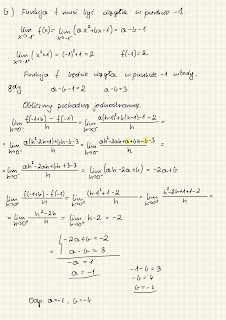 b) Funkcja f musi być ciągła w punkcie -1.
lim x→-1⁻ f(x) = lim x→-1⁻ (ax²+bx-1) = a-b-1
lim x→-1⁺ (x²+1) = (-1)²+1 = 2 f(-1) = 2
Funkcja f będzie ciągła w punkcie -1 wtedy,
gdy a-b-1=2 a-b=3
Obliczmy pochodne jednostronne:
lim h→0⁻ f(-1+h) - f(-1) / h = lim h→0⁻ a(h-1)²+b(h-1)-1-2 / h =
= lim h→0⁻ a(h²-2h+1)+bh-b-3 / h = lim h→0⁻ ah²-2ah+a+bh-b-3 / h =
= lim h→0⁻ ah²-2ah+bh+3-3 / h = lim h→0⁻ (ah-2a+b) = -2a+b
lim h→0⁺ f(-1+h) - f(-1) / h = lim h→0⁺ (h-1)²+1-2 / h = lim h→0⁺ h²-2h+1+1-2 / h =
= lim h→0⁺ h²-2h / h = lim h→0⁺ h-2 = -2
-2a+b = -2
a-b = 3
-a = 1
a = -1
-1-b = 3
-b = 4
b = -4
Odp: a=-1, b=-4